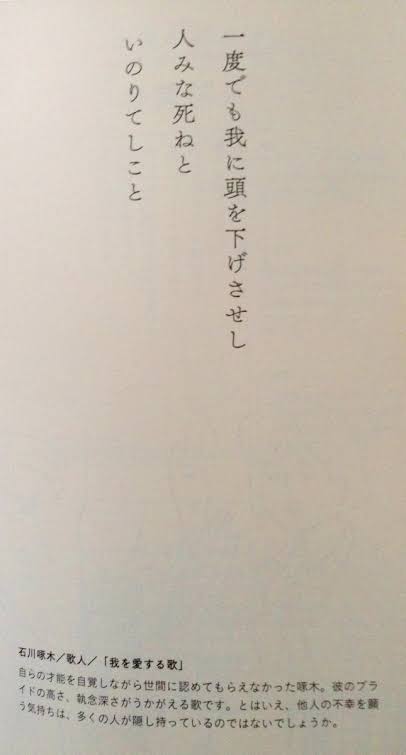 一度でも我に頭を下げさせし
人みな死ねと
いのりてしこと
石川啄木／歌人／「我を愛する歌」
自らの才能を自覚しながら世間に認めてもらえなかった啄木。彼のプラ
イドの高さ、執念深さがうかがえる歌です。とはいえ、他人の不幸を願
う気持ちは、多くの人が隠し持っているのではないでしょうか。